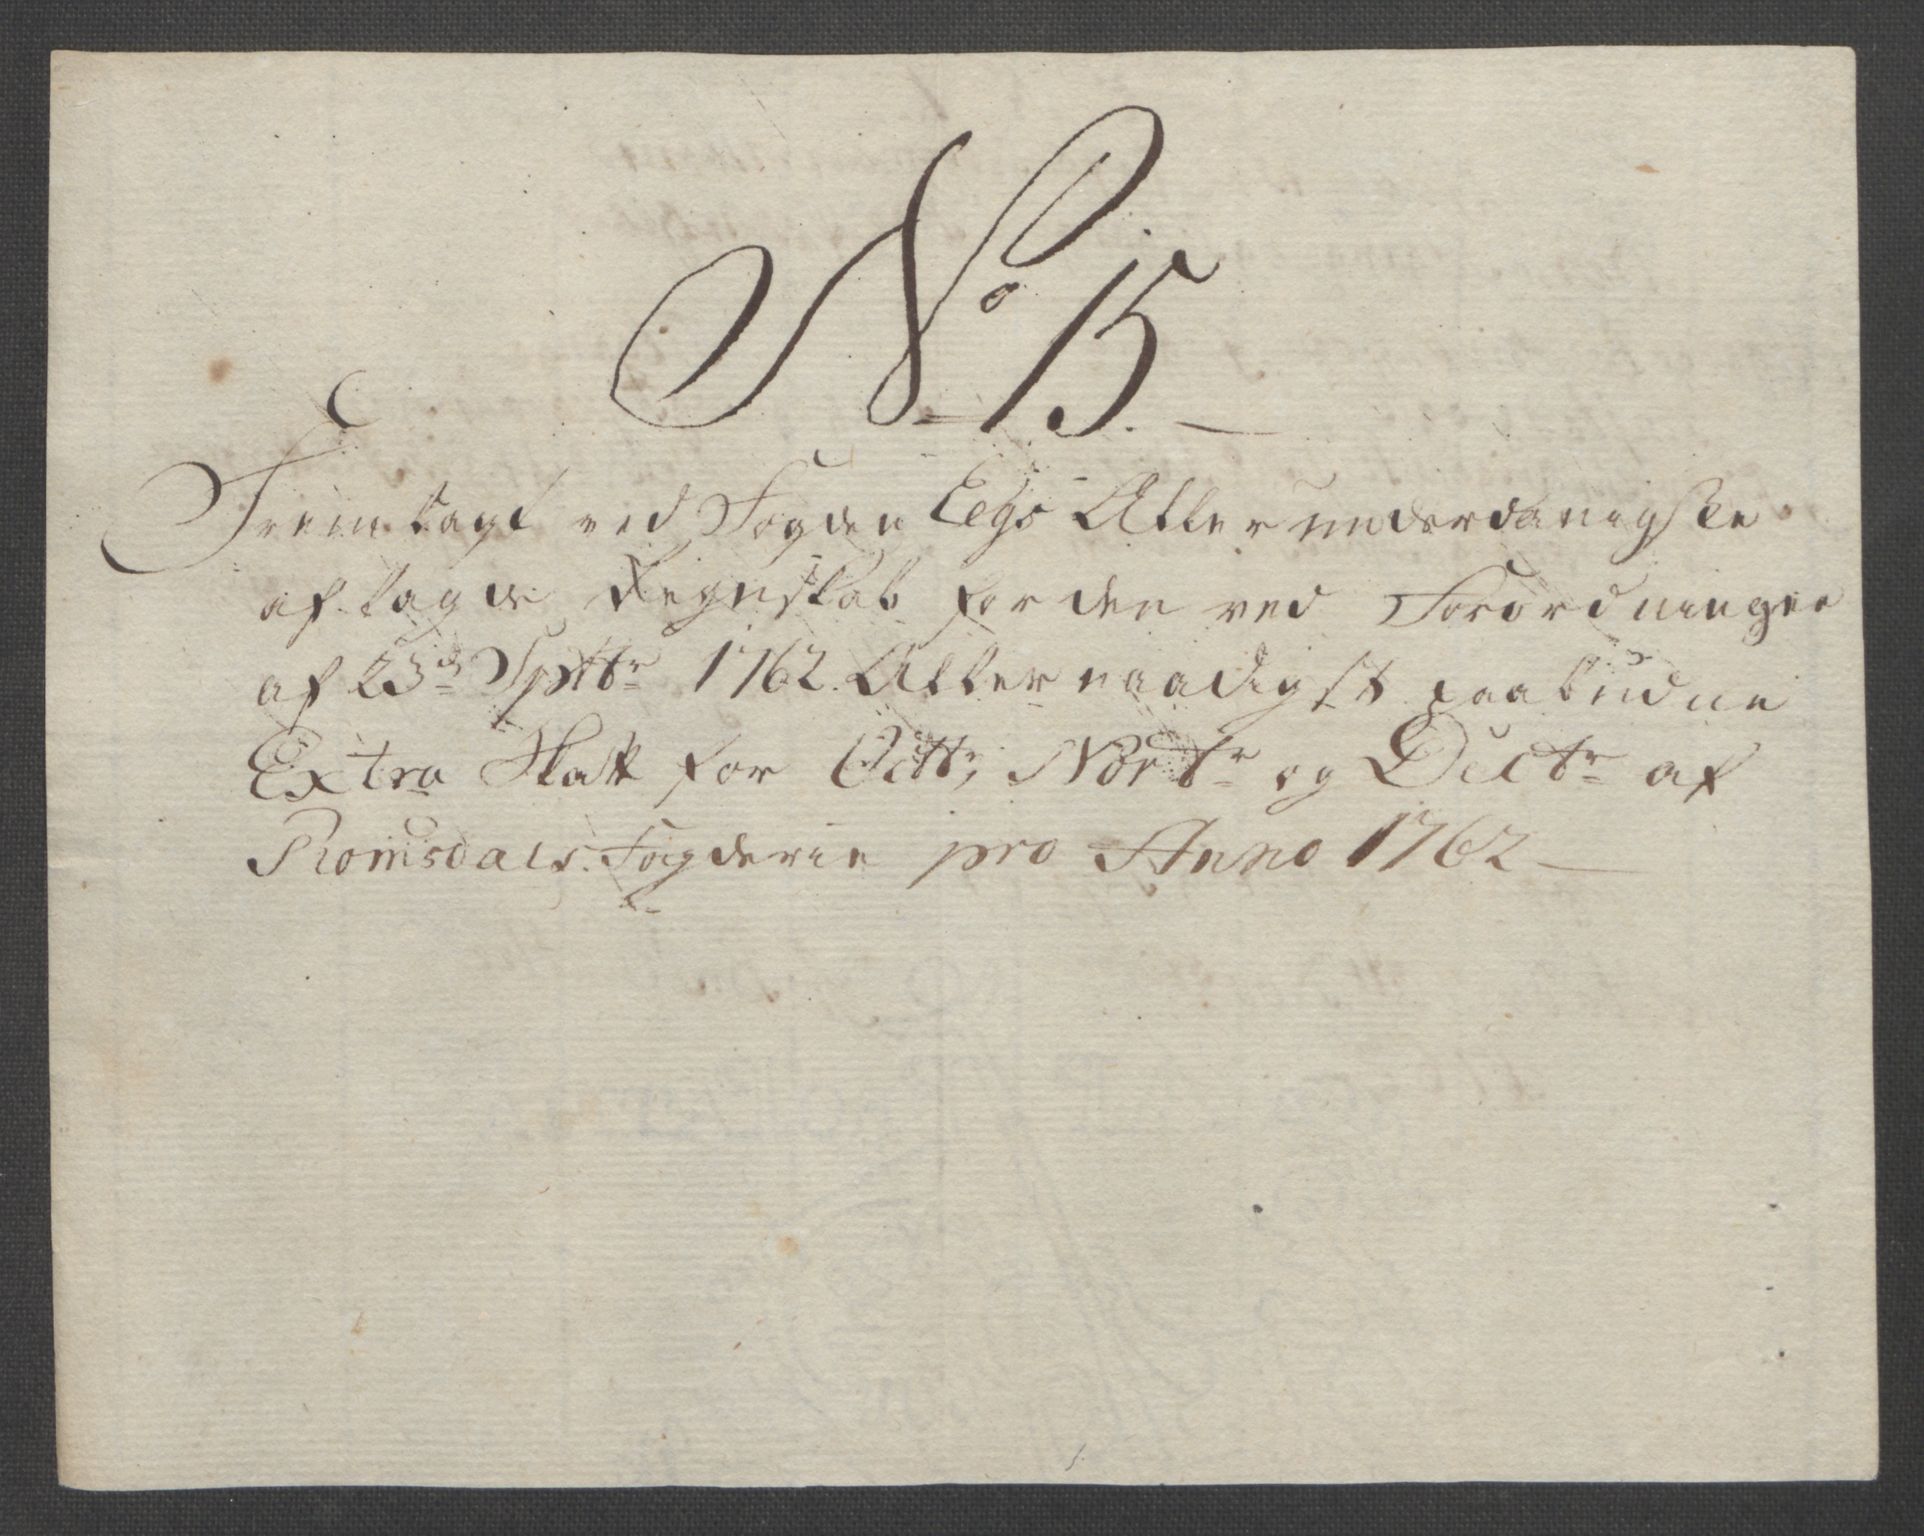 No 15.
Fremlagt ved Fogden Eegs Allerunderdanigste
aflagde Regnskab for den ved Forordningen
af 23de Septbr 1762. Allernaadigst paabudne
Extra Skatt for Octbr, Novbr og Decbr af
Romsdals Fogderie pro Anno 1762